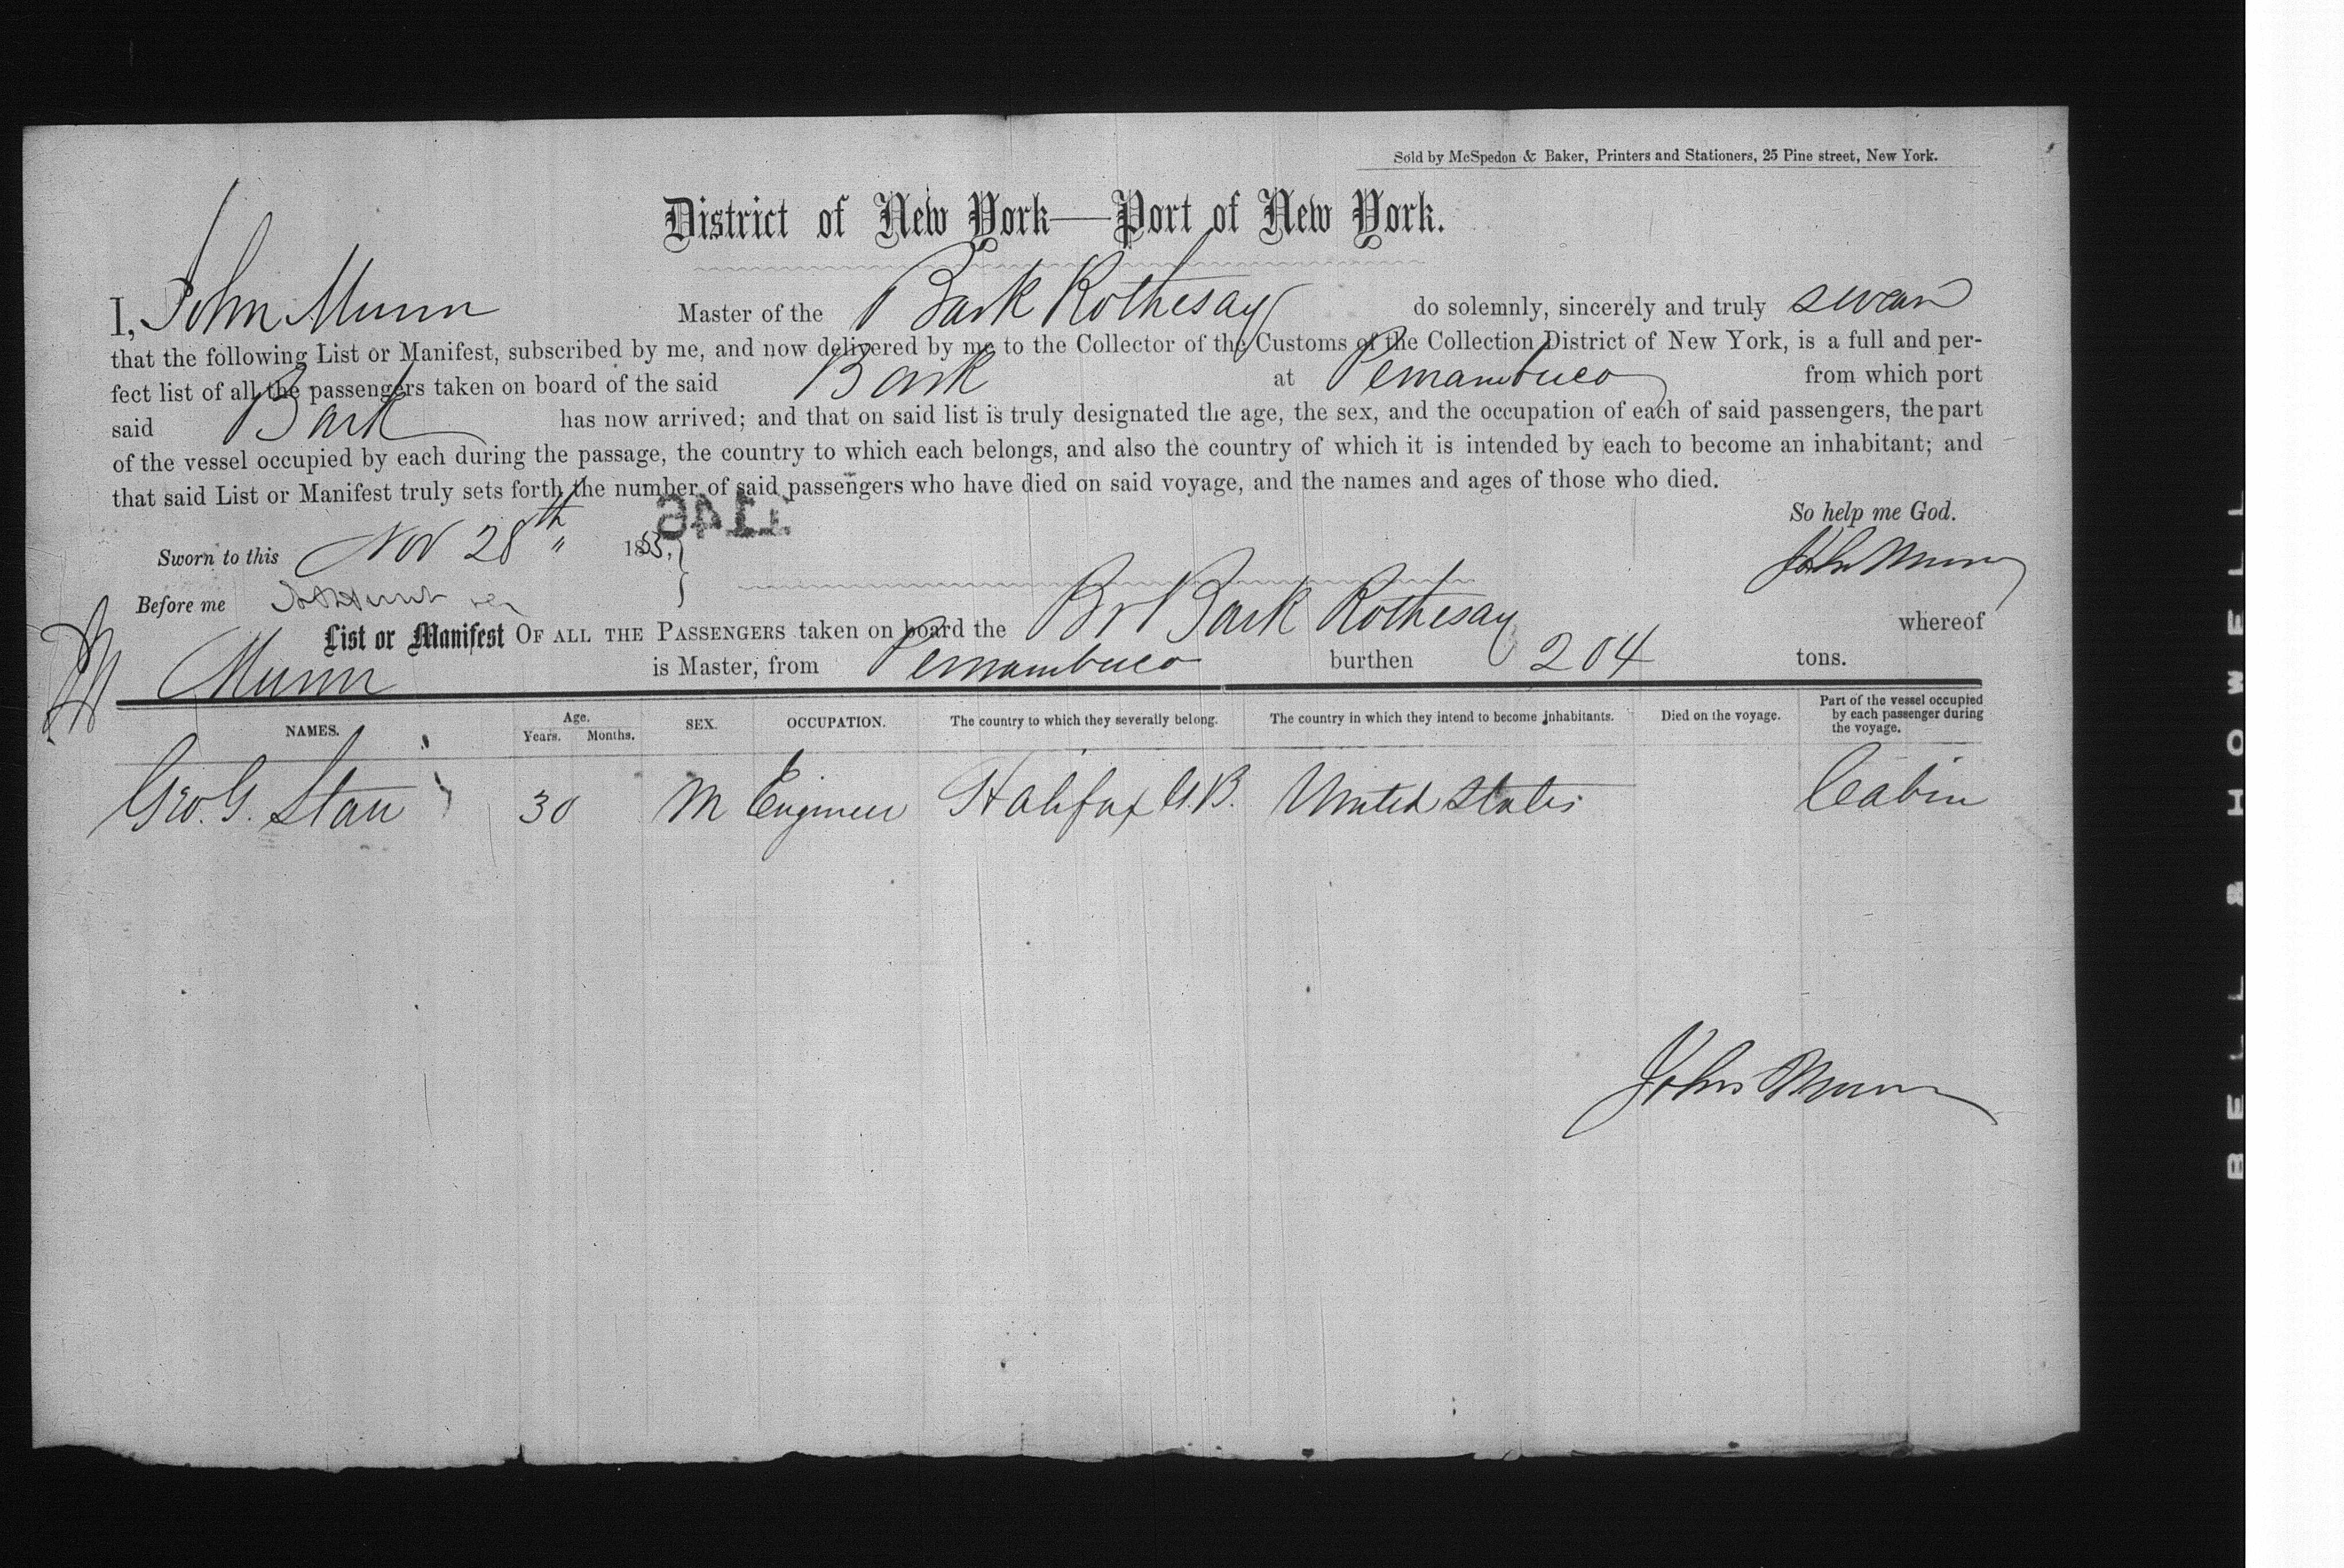 Sold by McSpedon & Baker, Printers and Stationers, 25 Pine street, New York.
District of New York—Port of New York.
I, John Munn Master of the Bark Rothesay do solemnly, sincerely and truly swear
that the following List or Manifest, subscribed by me, and now delivered by me to the Collector of the Customs of the Collection District of New York, is a full and per-
fect list of all the passengers taken on board of the said Bark at Pernambuco from which port
said Bark has now arrived; and that on said list is truly designated the age, the sex, and the occupation of each of said passengers, the part
of the vessel occupied by each during the passage, the country to which each belongs, and also the country of which it is intended by each to become an inhabitant; and
that said List or Manifest truly sets forth the number of said passengers who have died on said voyage, and the names and ages of those who died.
So help me God.
Sworn to this Nov 28th " 1853,
John Munn
Before me
List or Manifest OF ALL THE PASSENGERS taken on board the Br Bark Rothesay whereof
Munn is Master, from Pernambuco burthen 204 tons.
NAMES. Age. Years. Months. SEX. OCCUPATION. The country to which they severally belong. The country in which they intend to become inhabitants. Died on the voyage. Part of the vessel occupied by each passenger during the voyage.
Geo. G. Starr 30 M Engineer Halifax United States Cabin
John Munn
BELL & HOWELL